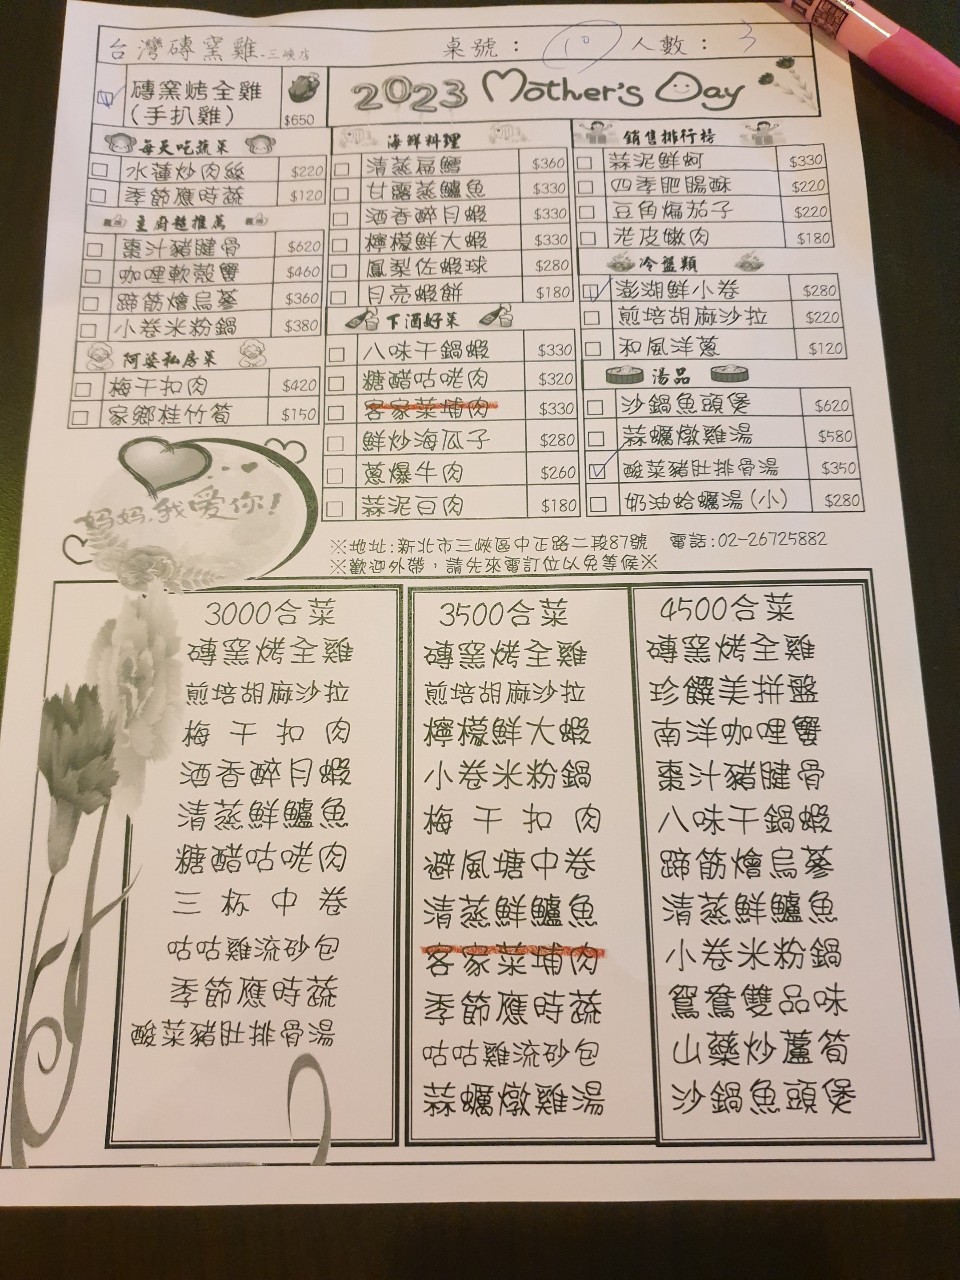 台灣磚窯雞-三峽店 桌號：10 人數：3
磚窯烤全雞
(手扒雞) $650
2023 Mother's Day
每天吃蔬菜
水蓮炒肉絲 $220
季節應時蔬 $120
主廚超推薦
棗汁豬腱骨 $620
咖哩軟殼蟹 $460
蹄筋燴烏蔘 $360
小卷米粉鍋 $380
阿婆私房菜
梅干扣肉 $420
家鄉桂竹筍 $150
妈妈,我愛你!
海鮮料理
清蒸扁鱈 $360
甘露蒸鱸魚 $330
酒香醉月蝦 $330
檸檬鮮大蝦 $330
鳳梨佐蝦球 $280
月亮蝦餅 $180
下酒好菜
八味干鍋蝦 $330
糖醋咕咾肉 $320
客家菜埔肉 $330
鮮炒海瓜子 $280
蔥爆牛肉 $260
蒜泥白肉 $180
銷售排行榜
蒜泥鮮蚵 $330
四季肥腸酥 $220
豆角煸茄子 $220
老皮嫩肉 $180
冷盤類
澎湖鮮小卷 $280
煎焙胡麻沙拉 $220
和風洋蔥 $120
湯品
沙鍋魚頭煲 $620
蒜蠣燉雞湯 $580
酸菜豬肚排骨湯 $350
奶油蛤蠣湯(小) $280
※地址:新北市三峽區中正路二段87號 電話:02-26725882
※歡迎外帶，請先來電訂位以免等候※
3000合菜
磚窯烤全雞
煎焙胡麻沙拉
梅干扣肉
酒香醉月蝦
清蒸鮮鱸魚
糖醋咕咾肉
三杯中卷
咕咕雞流砂包
季節應時蔬
酸菜豬肚排骨湯
3500合菜
磚窯烤全雞
煎焙胡麻沙拉
檸檬鮮大蝦
小卷米粉鍋
梅干扣肉
避風塘中卷
清蒸鮮鱸魚
客家菜埔肉
季節應時蔬
咕咕雞流砂包
蒜蠣燉雞湯
4500合菜
磚窯烤全雞
珍饌美拼盤
南洋咖哩蟹
棗汁豬腱骨
八味干鍋蝦
蹄筋燴烏蔘
清蒸鮮鱸魚
小卷米粉鍋
鴛鴦雙品味
山藥炒蘆筍
沙鍋魚頭煲